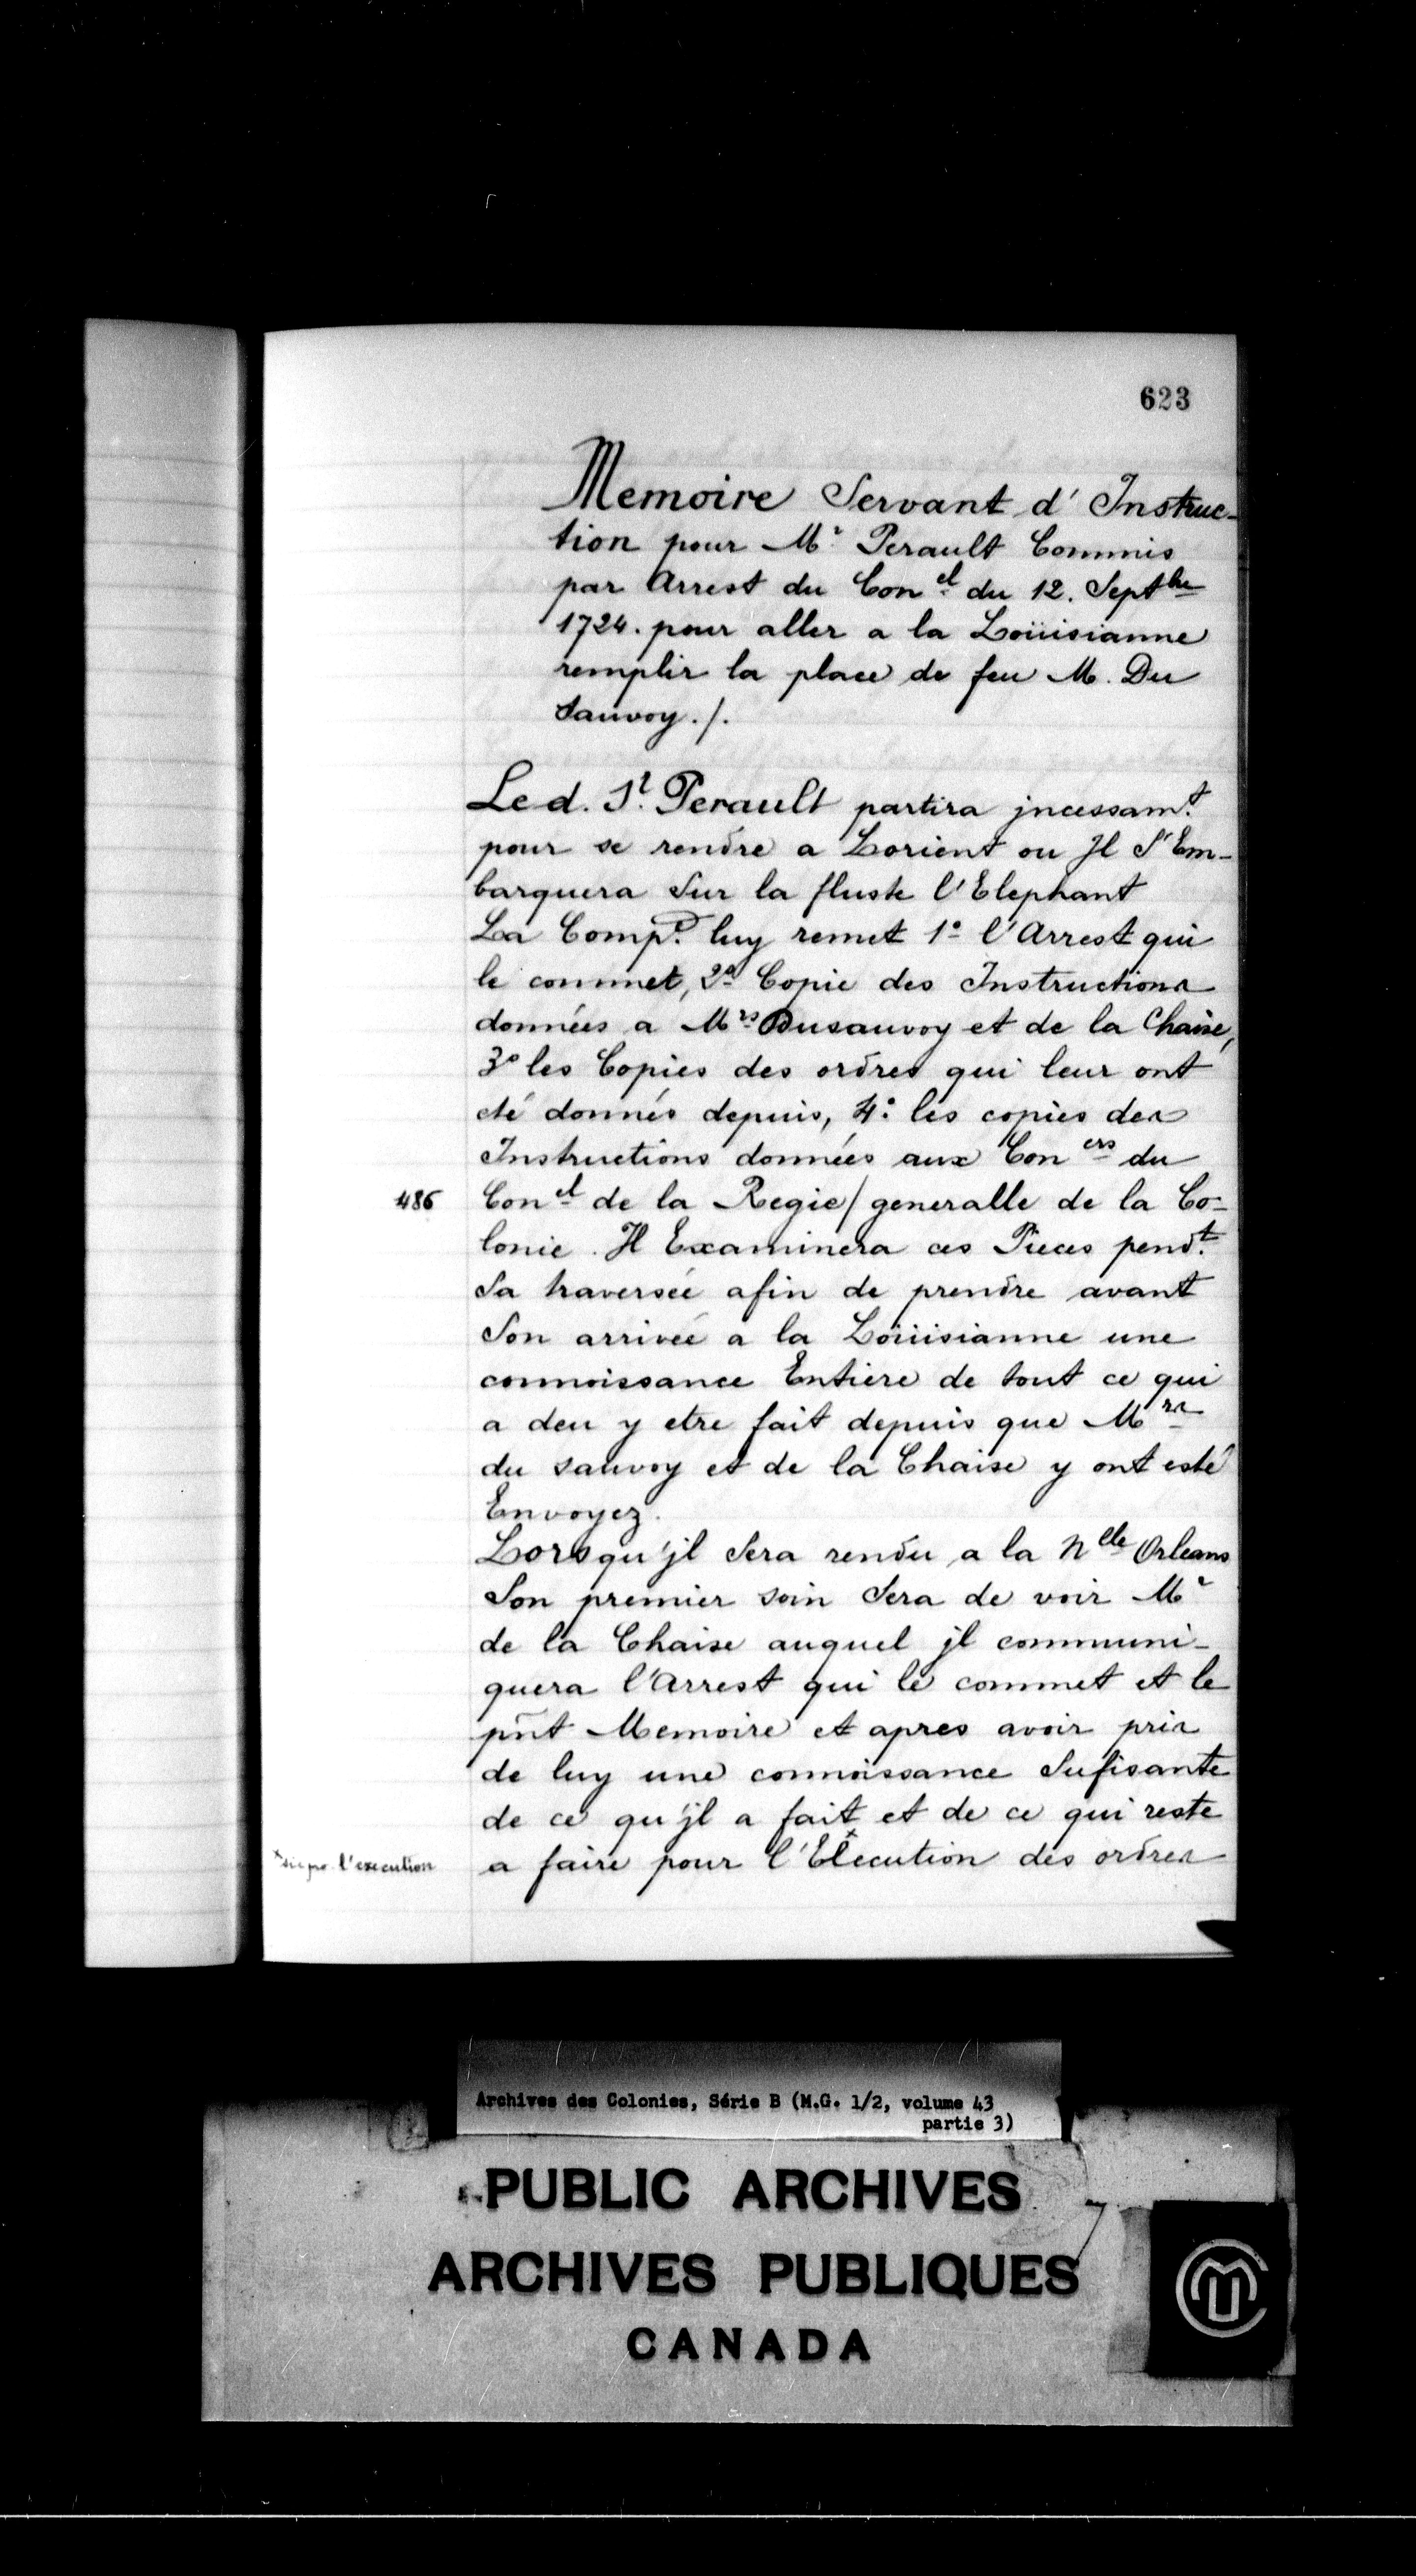 623
Memoire Servant d'Instruc-
tion pour Mr. Perault Commis
par Arrest du Conel. du 12. Septbre
1724. pour aller a la Loüisianne
remplir la place de feu M. Du
Sauvoy./.
Led. Sr. Perault partira jncessamt.
pour se rendre a Lorient ou Jl S'Em-
barquera Sur la fluste l'Elephant
La Comp.e luy remet 1º l'Arrest qui
le commet, 2º Copie des Instructions
données a Mrs. Dusauvoy et de la Chaise,
3º les Copies des ordres qui leur ont
eté donnés depuis, 4º les copies des
Instructions données aux Coners du
486 Conel. de la Regie/generalle de la Co-
lonie. Jl Examinera ces Pieces pendt.
Sa traversée afin de prendre avant
Son arrivée a la Loüisianne une
connoissance Entiere de tout ce qui
a deu y etre fait depuis que Mrs
du Sauvoy et de la Chaise y ont esté
Envoyez.
Lorsqu'jl Sera rendu a la Nlle Orleans
Son premier soin Sera de voir Mr
de la Chaise auquel jl communi-
quera l'Arrest qui le commet et le
pñt Memoire et apres avoir pris
de luy une connoissance Sufisante
de ce qu'jl a fait et de ce qui reste
a faire pour l'Elecution* des ordres
*sic po. l'execution
Archives des Colonies, Série B (M.G. 1/2, volume 43
partie 3)
PUBLIC ARCHIVES
ARCHIVES PUBLIQUES
CANADA